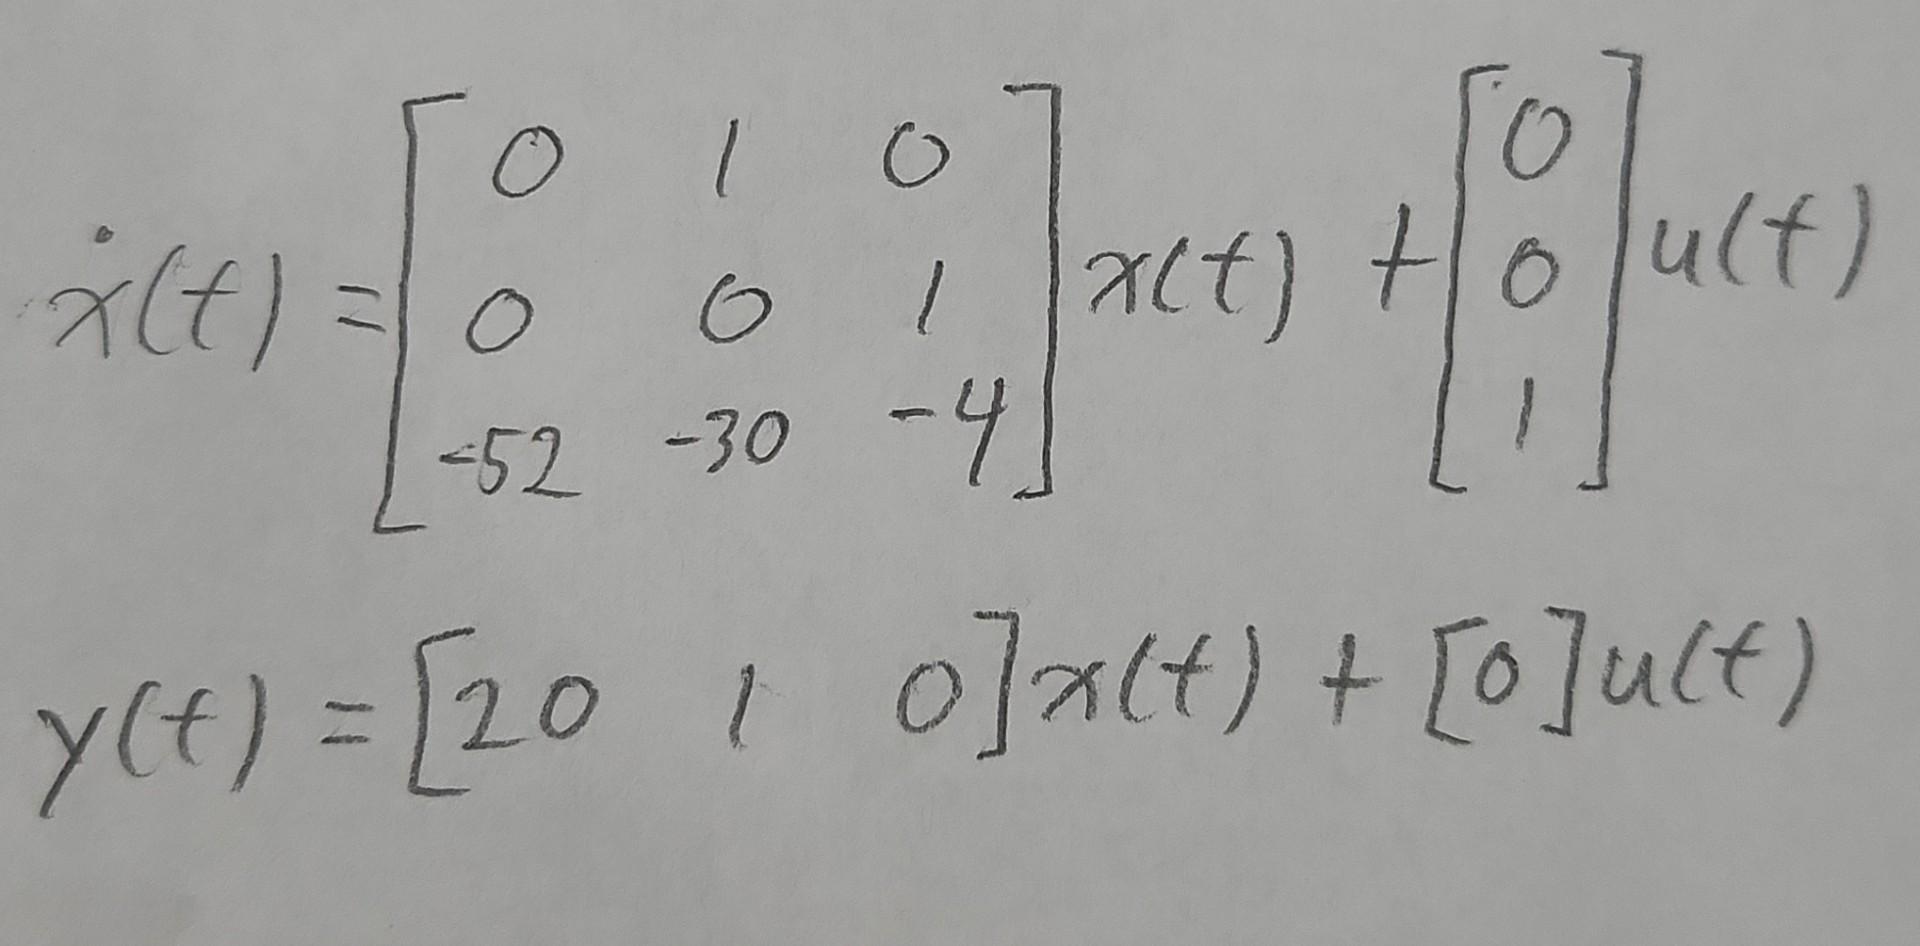 ẋ(t) = [0 1 0; 0 0 1; -52 -30 -4] x(t) + [0; 0; 1] u(t)
y(t) = [20 1 0] x(t) + [0] u(t)